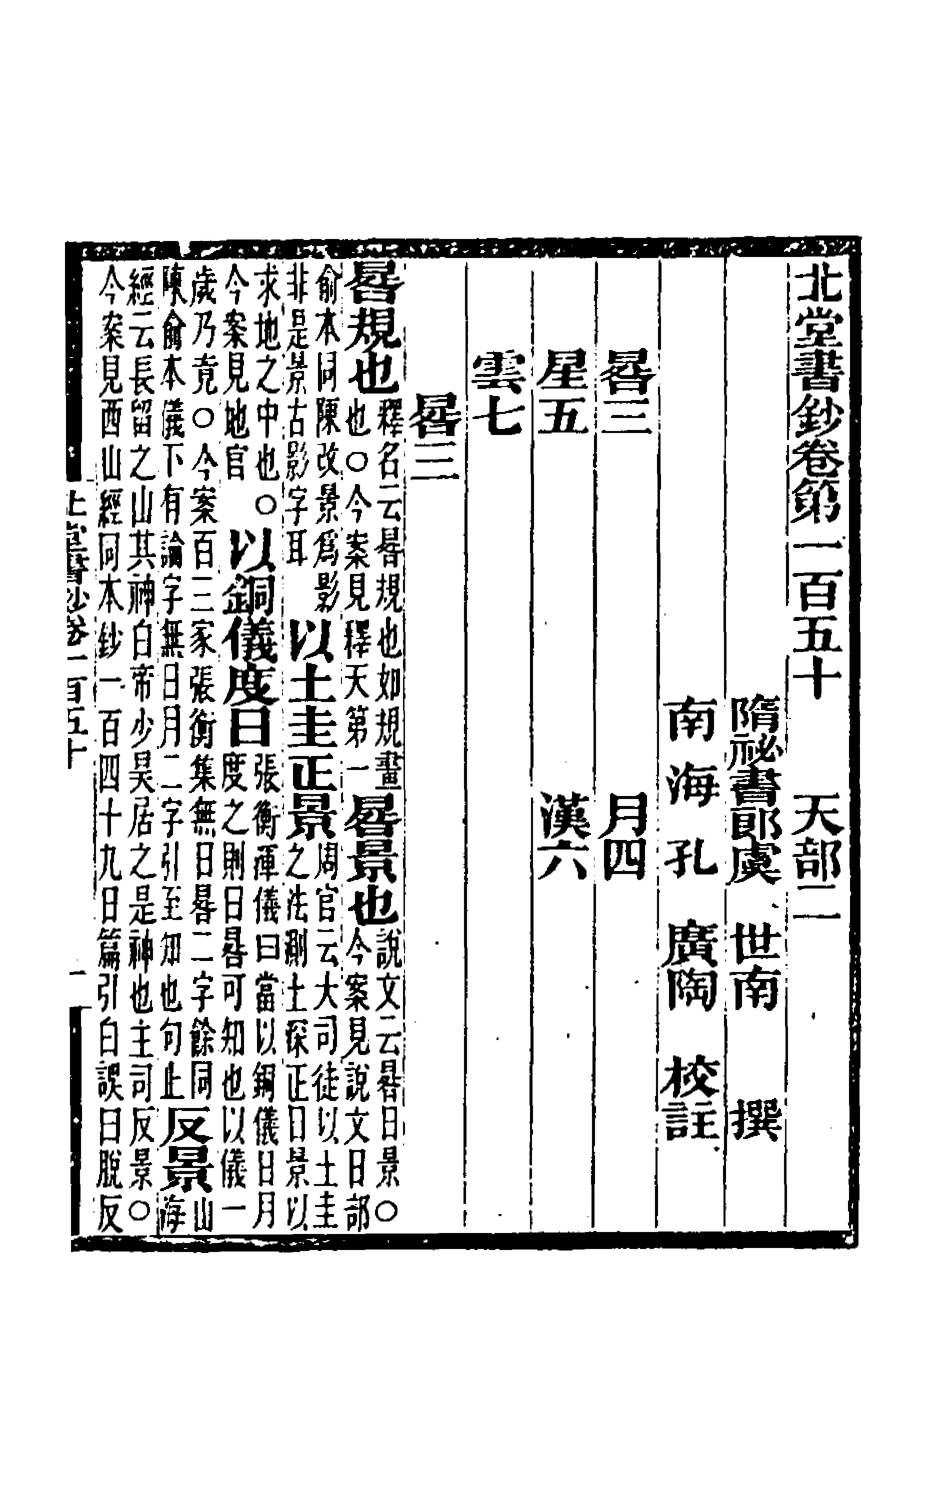 北堂書鈔卷第一百五十　天部二
隋祕書郎虞　世南　撰
南海孔　廣陶　校註
晷三　月四
星五　漢六
雲七
晷三
晷規也釋名云晷規也如規畫也○今案見釋天第一晷景也說文云晷日景○今案見說文日部
俞本同陳改景爲影非是景古影字耳以土圭正景周官云大司徒以土圭之法測土深正日景以
求地之中也○今案見地官以銅儀度日張衡渾儀曰當以銅儀日月度之則日晷可知也以儀一
歲乃竟○今案百三家張衡集無日晷二字餘同陳俞本儀下有論字無日月二字引至知也句止反景山海
經云長留之山其神白帝少昊居之是神也主司反景○今案見西山經同本鈔一百四十九日篇引白誤曰脫反
北堂書鈔卷一百五十　一